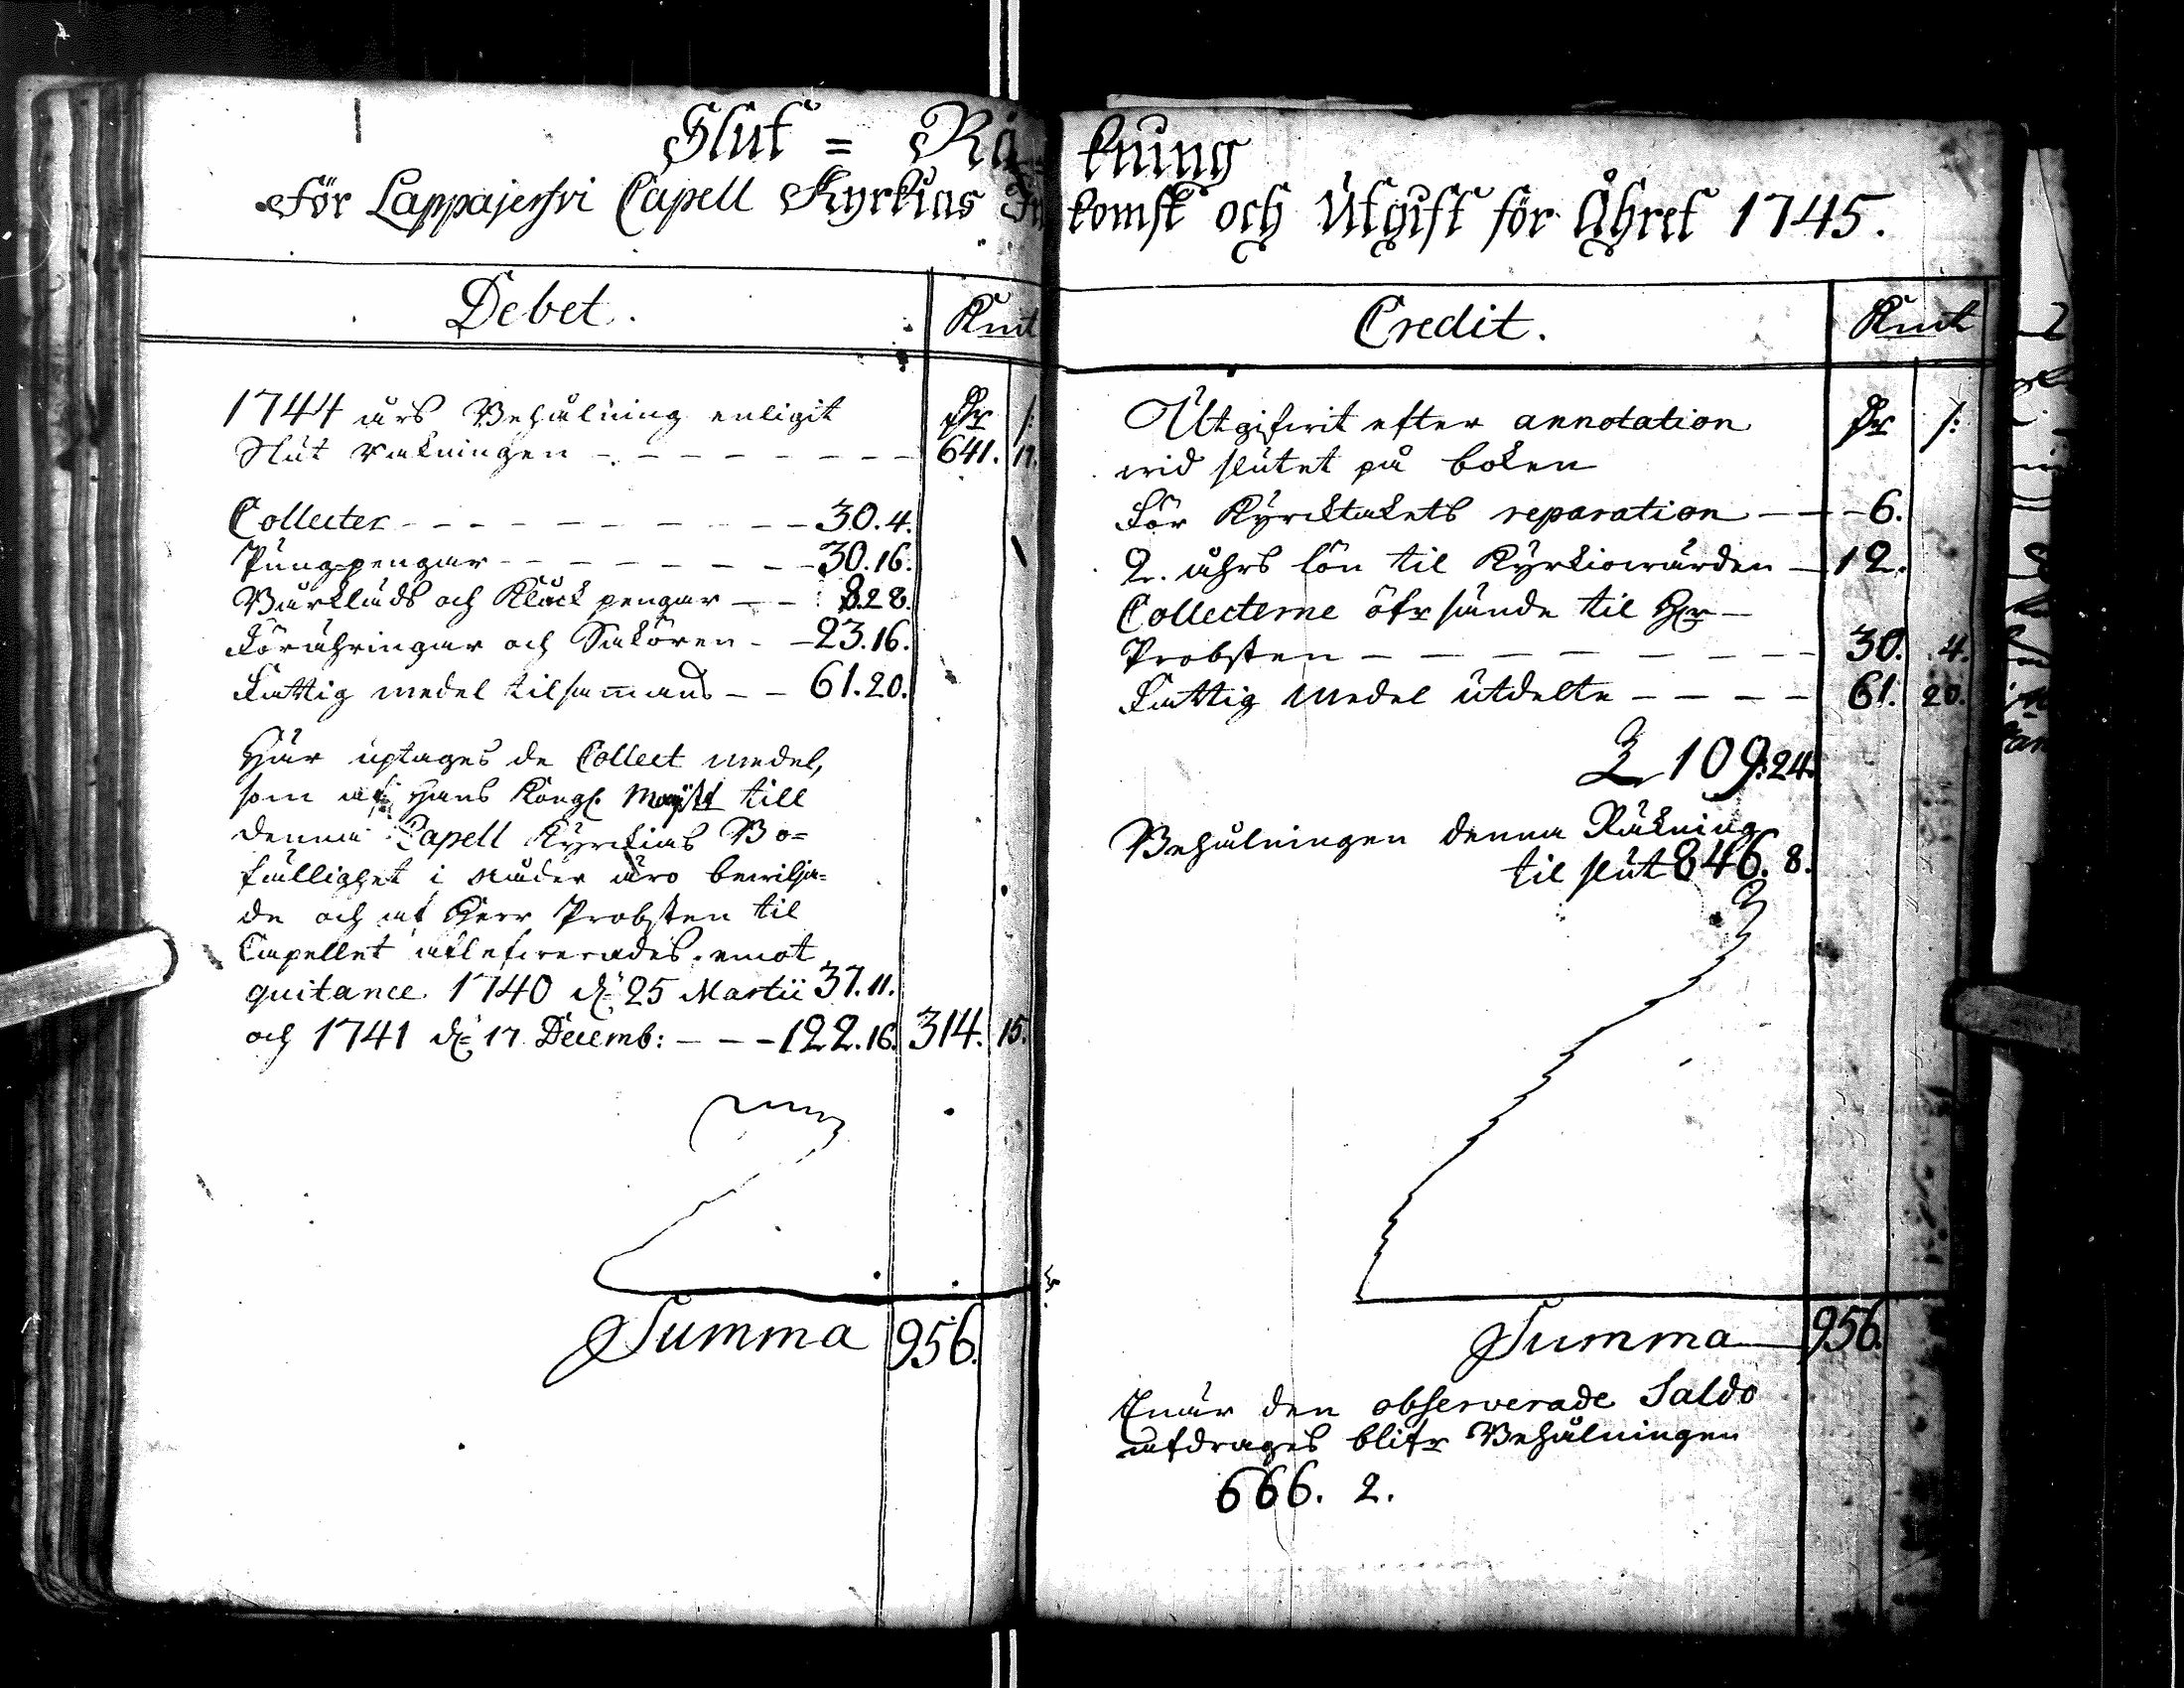 Slut = Räkning
För Lappajerfvi Capell Kyrkias Inkomst och Utgift för Åhret 1745.
Debet. Kmt
1744 års Behålning enligit Dr /:
Slut räkningen - - - - - - - - 641. 17.
Collecter - - - - - - - - - 30. 4.
Pungpengar - - - - - - - 30.16.
Bårkläds och Klåck pengar - - 8.28.
Förähringar och Sakören - - 23.16.
Fattig medel tilsammans - - 61.20.
Här uptages de Collect medel,
som af Hans Kongl. Mayst till
denna Capell Kyrckias Bo=
fällighet i nåder äro bewilja=
de och af Herr Probsten til
Capellet aflefwerades emot
quitance 1740 d: 25 Martii 37.11.
och 1741 d: 17 Decemb: - - - 122.16. 314. 15.
Summa 956.
Credit. Kmt
Utgifwit efter annotation Dr /:
wid slutet på boken
För Kyrcktakets reparation - - - 6.
2. åhrs lön til Kyrkiowärden - 12.
Collecterne öfr sände til Hr -
Probsten - - - - - - - - 30. 4.
Fattig medel utdelte - - - - 61. 20.
109:24.
Behålningen denna Räkning
til slut 846. 8.
Summa 956.
Enär den observerade Saldo
afdrages blifr Behålningen
666. 2.